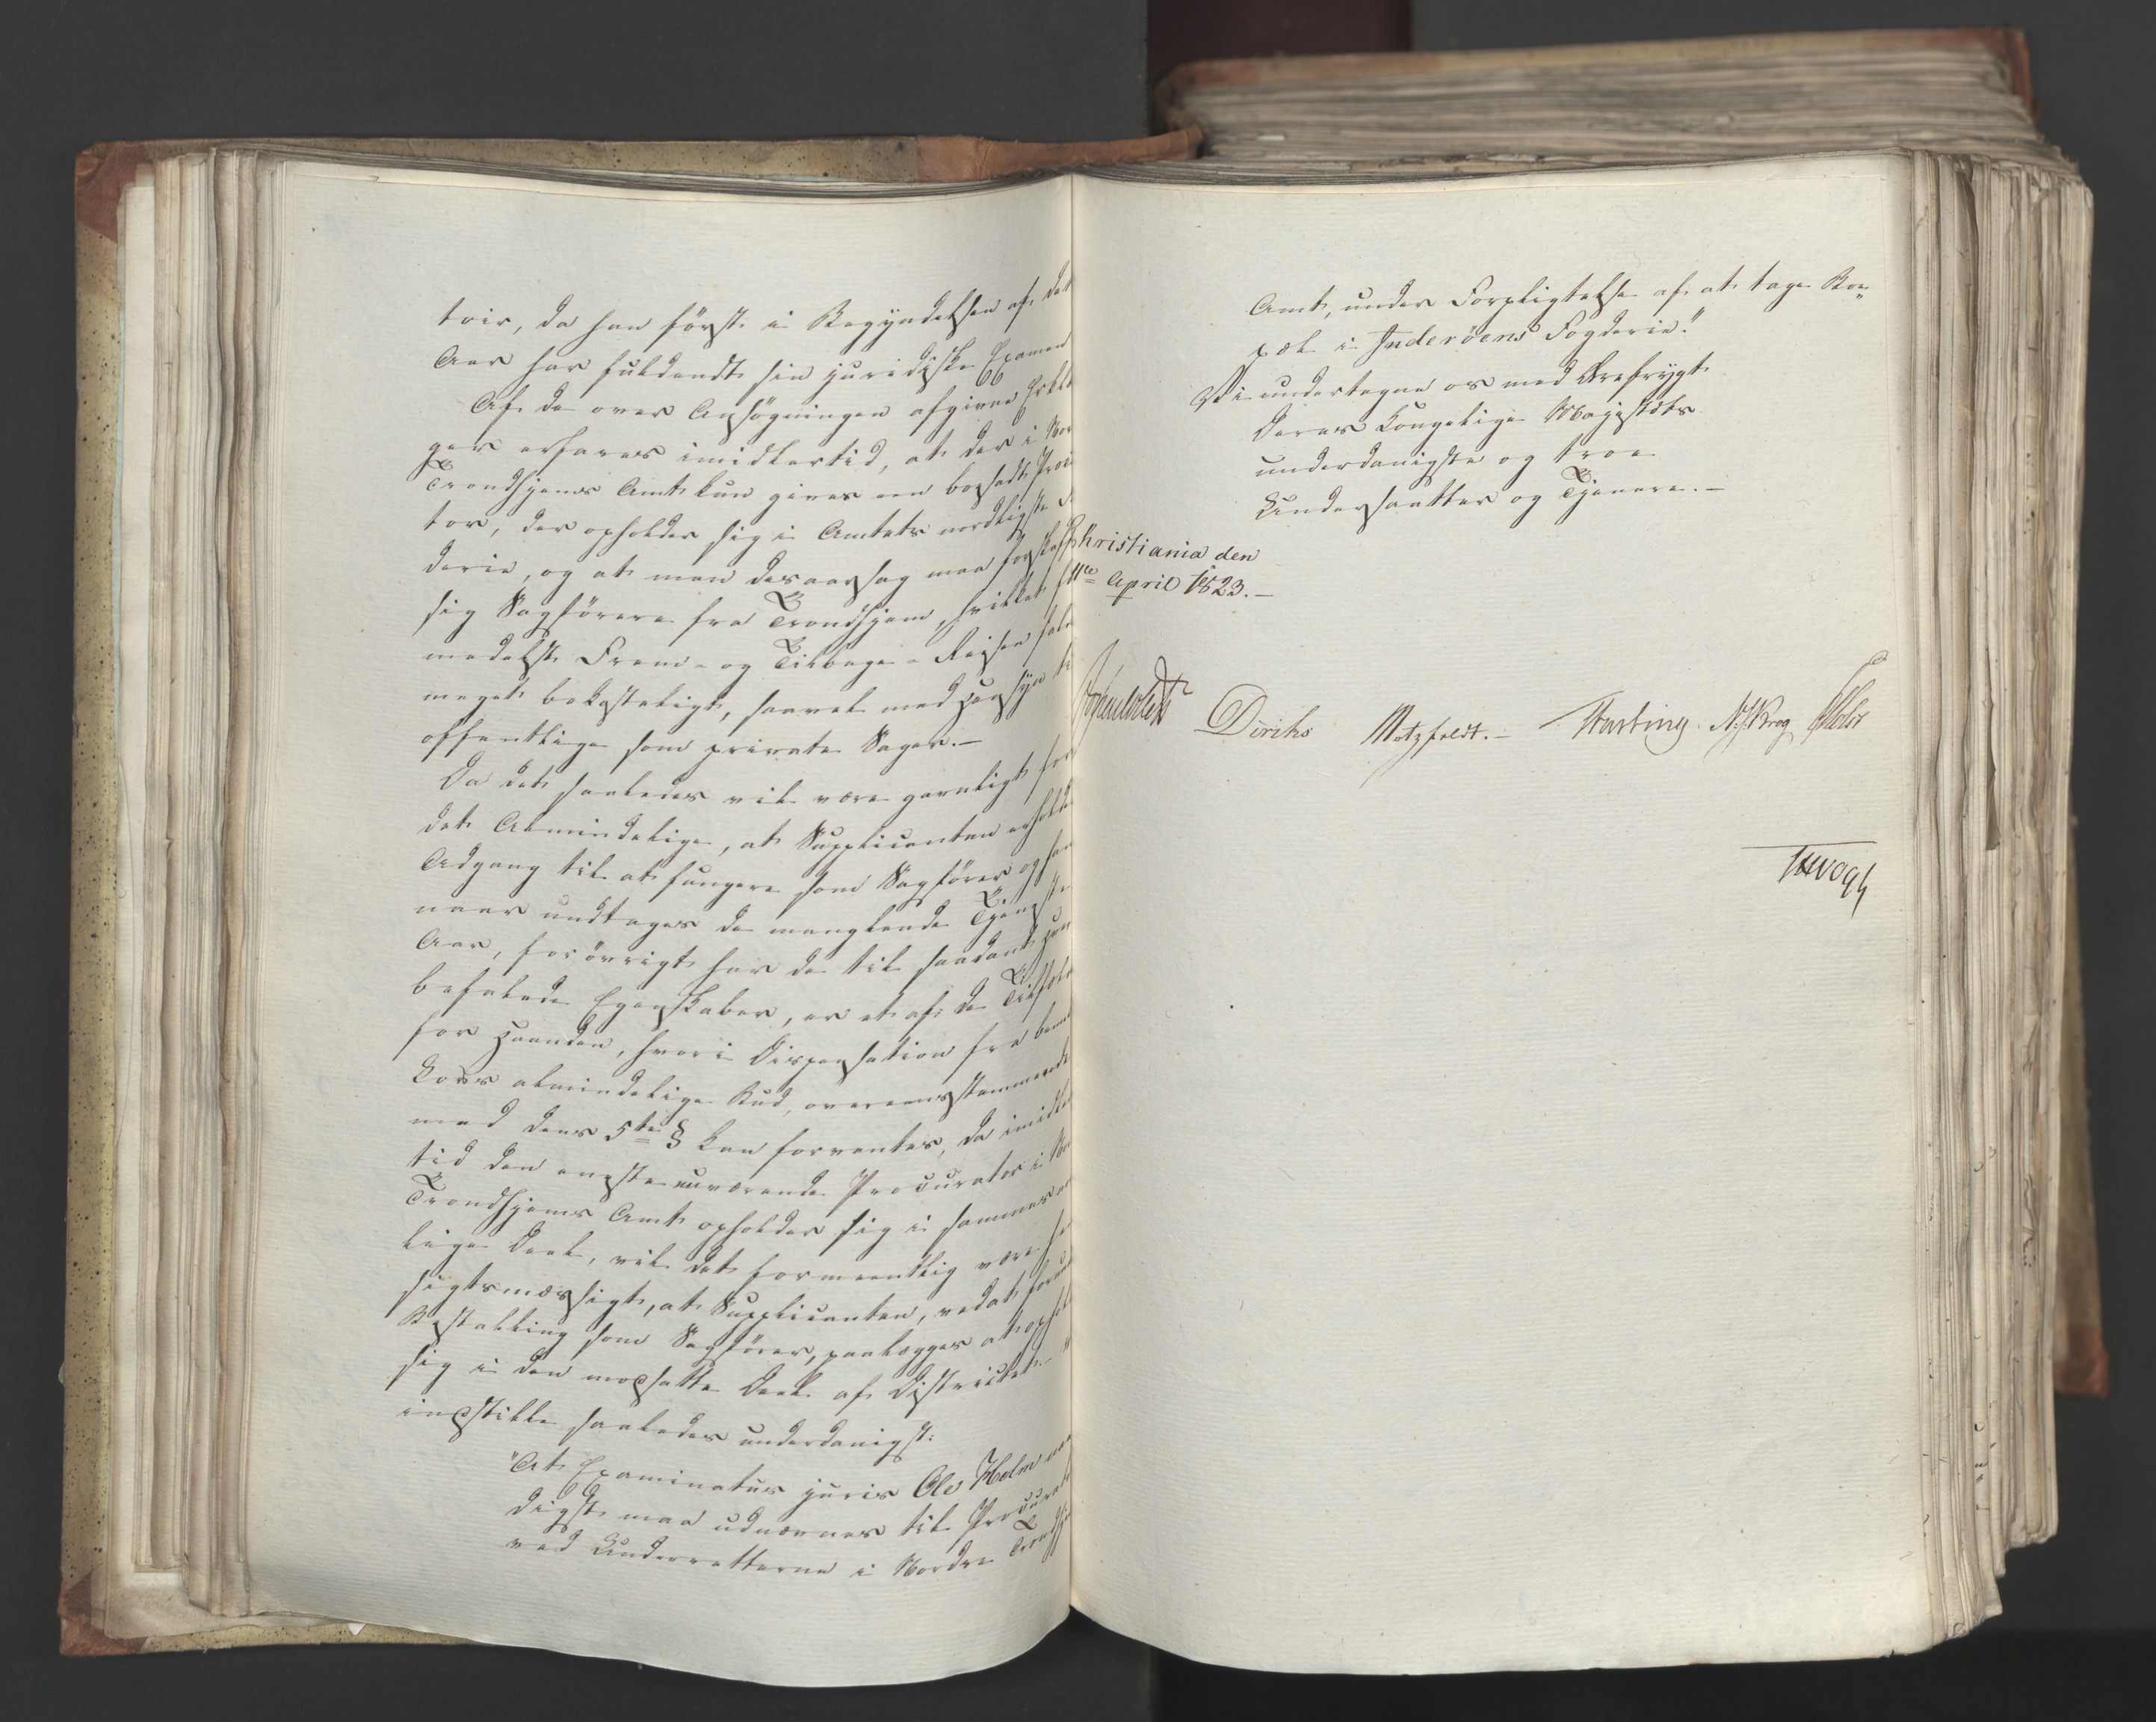 toir, da han først i Begyndelsen af det
Aar har fuldendt sin juridiske Examen
Af de over Ansøgningen afgivne Erklæ
ger erfares imidlertid, at der i Nor
Trondhjems Amt kun gives een bosadt Procu
tor, der opholder sig i Amtets nordligste
derie, og at man desaarsag maa forskaffe
sig Sagførere fra Trondhjem, hvilket
medelst Frem- og Tilbage-Reisen fal
meget bekosteligt, saavel med Hensyn til
offentlige som private Sager.-
Da det saaledes vil være gavnligt for
det Almindelige, at Supplicanten erholde
Adgang til at fungere som Sagfører og han
naar undtages de manglende Tjeneste
Aar, forøvrigt har de til saadant
befalede Egenskaber, er et af de Tilfælde
for Haanden, hvori Dispensation fra
Lovs almindelige Bud, overeensstemmende
med dens 5te § kan forventes, da imidler
tid den eneste nuværende Procurator i Nor
Trondhjems Amt opholder sig i sammes
lige Deel, vil det formeentlig være
sigtsmæssigt, at Supplicanten, ved at
Bestalling som Sagfører, paalægges at ophol
sig i den modsatte Deel af Districtet.
indstille saaledes underdanigst:
"At Examinatus juris Ole Holm
digst maa udnævnes til Procurat
ved Underretterne i Nordre Trondhj
Amt, under Forpligtelse af at tage Boe„
pæl i Inderöens Fogderie."
Vi undertegne os med Ærefrygt
Deres Kongelige Majestæts
underdanigste og troe
Undersaatter og Tjenere.-
Christiania den
11te April 1823.-
Diriks Motzfeldt.- N. J. Krog
JHVogt